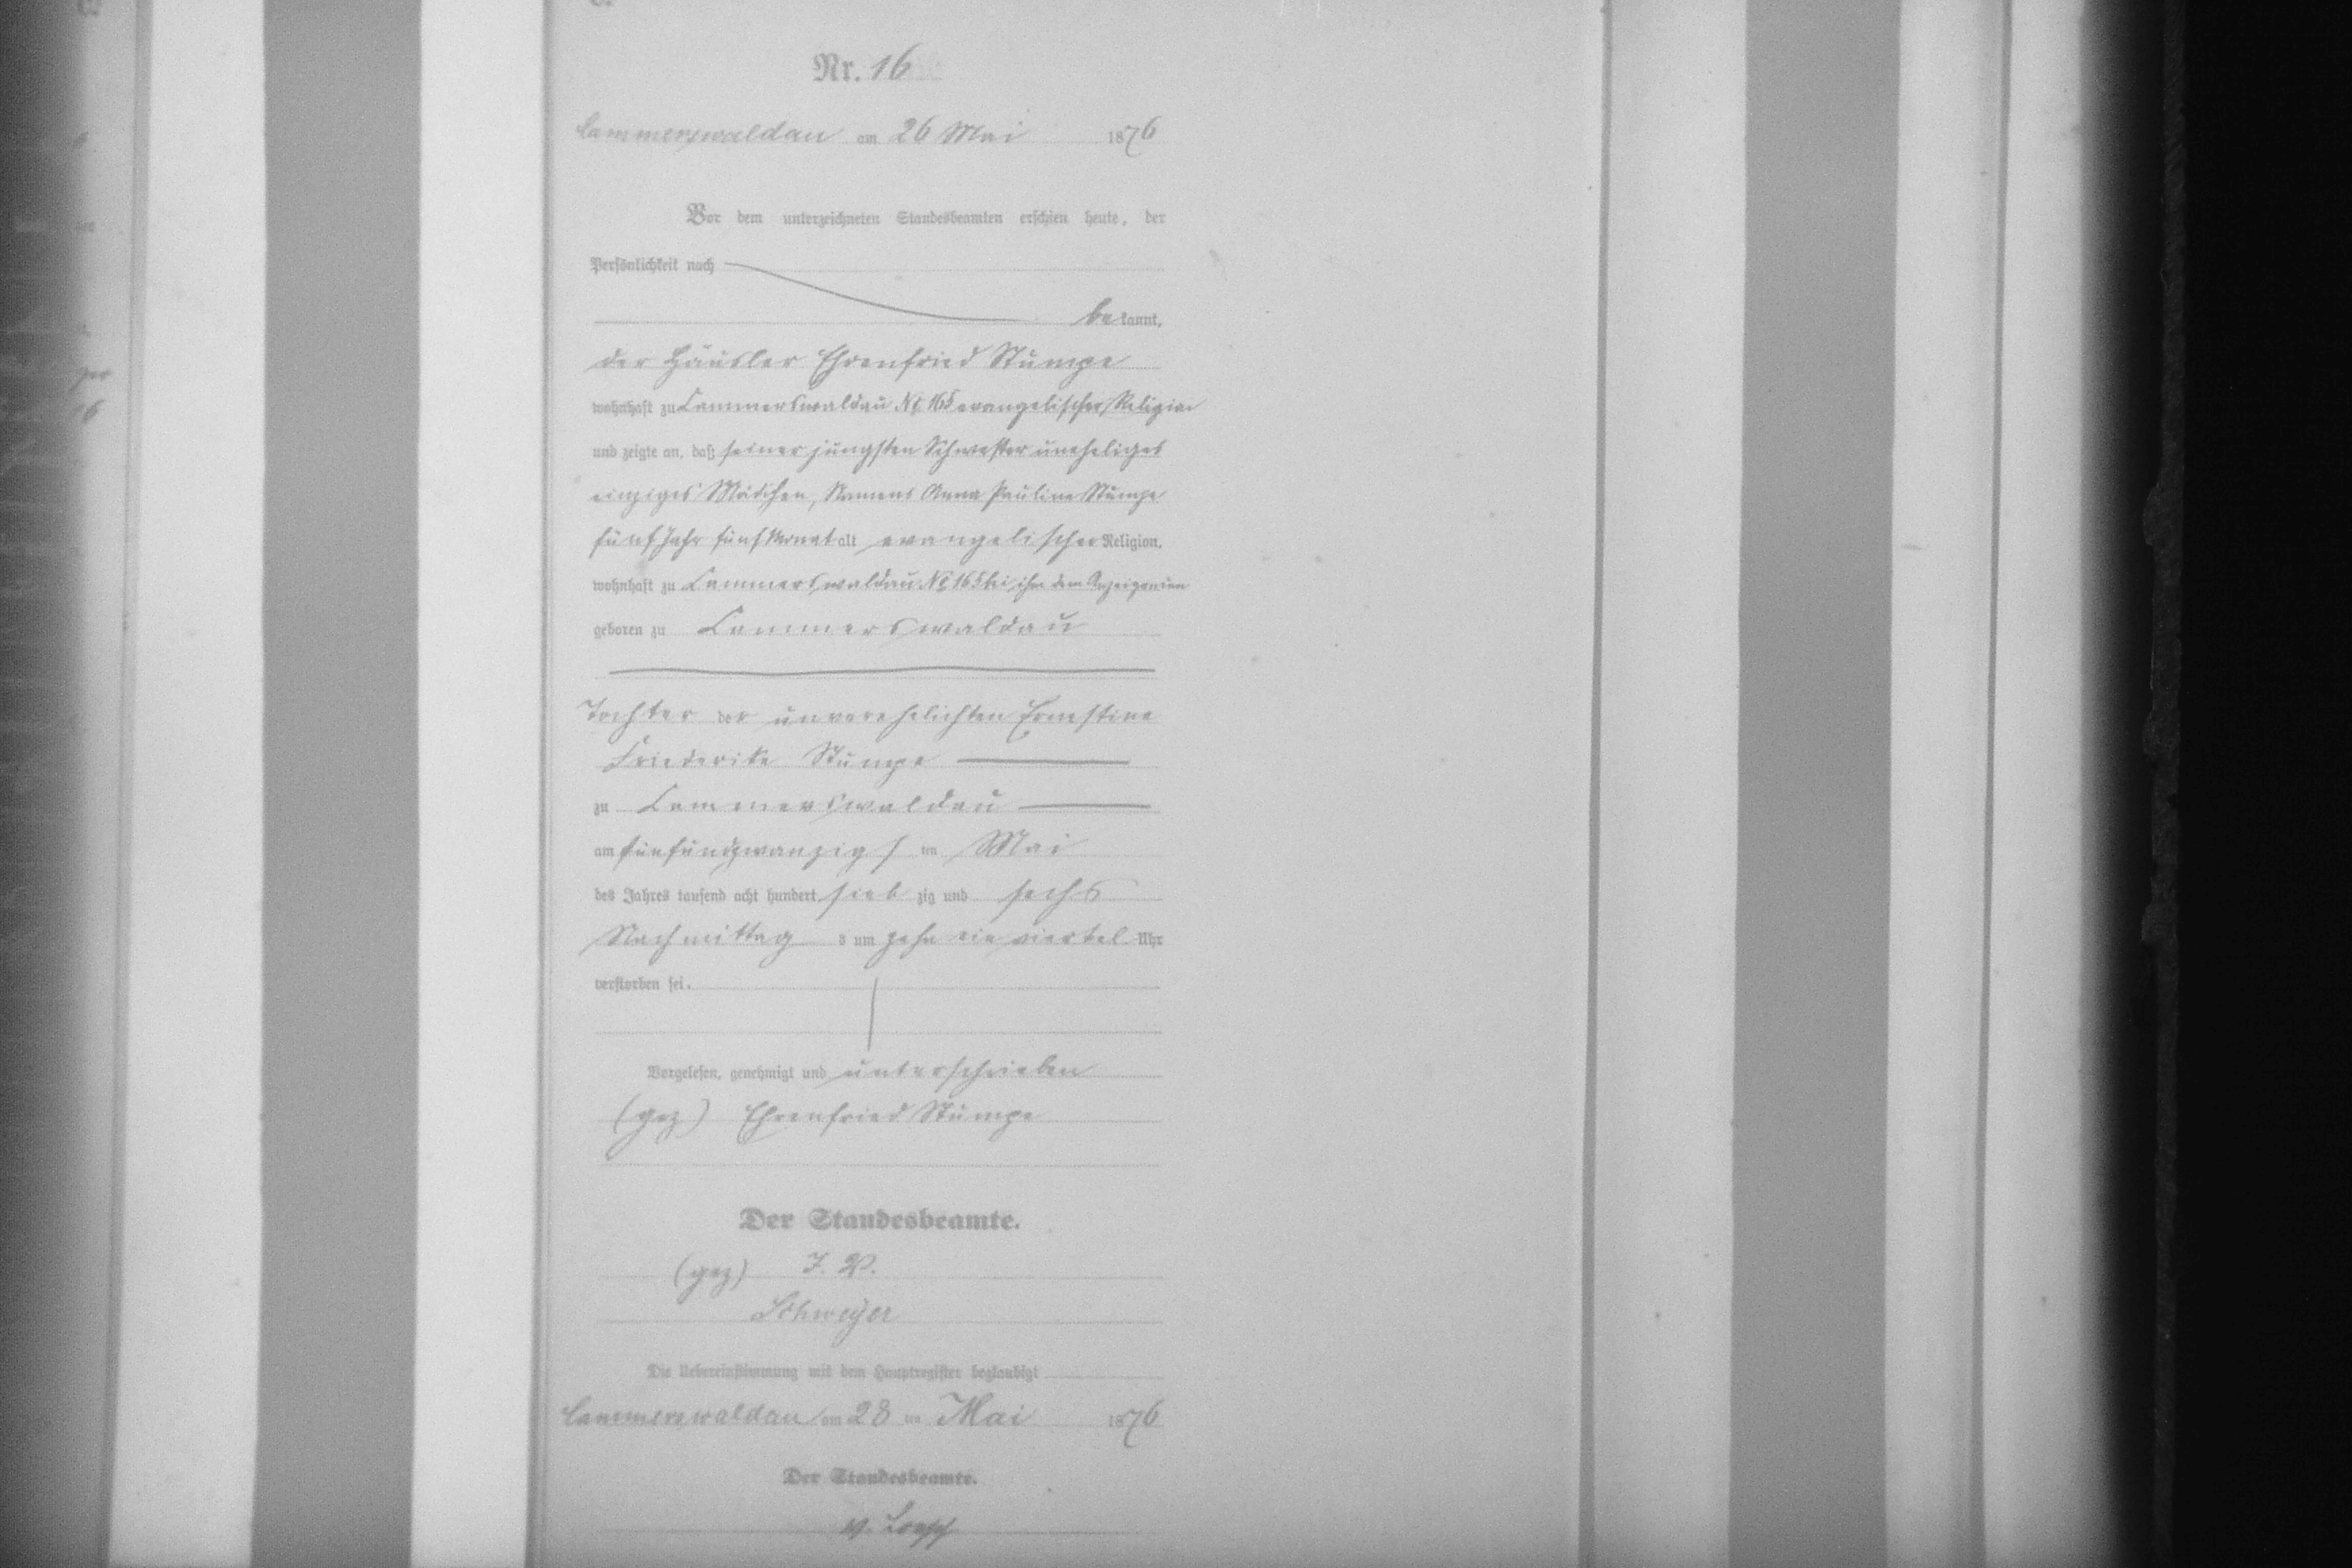 Nr. 16
Cammerswaldau am 26 Mai 1876
Vor dem unterzeichneten Standesbeamten erschien heute, der
Persönlichkeit nach
be kannt,
der Häusler Ehrenfried Stumpe
wohnhaft zu Cammerswaldau No 165 evangelischer Religion
und zeigte an, daß seiner jüngsten Schwester uneheliges
einziges Mädchen, Namens Anna Pauline Stumpe
fünf Jahr fünf Monat alt evangelischer Religion,
wohnhaft zu Cammerswaldau No 165 bei ihm dem Anzeigenden
geboren zu Cammerswaldau
Tochter der unverehelichten Ernestine
Friederike Stumpe
zu Cammerswaldau
am fünfundzwanzigs ten Mai
des Jahres tausend acht hundert sieb zig und sechs
Nachmittag s um zehn ein viertel Uhr
verstorben sei.
Vorgelesen, genehmigt und unterschrieben
(gez) Ehrenfried Stumpe
Der Standesbeamte.
(gez) I. V.
Schweyer
Die Uebereinstimmung mit dem Hauptregister beglaubigt
Cammerswaldau am 28 ten Mai 1876
Der Standesbeamte.